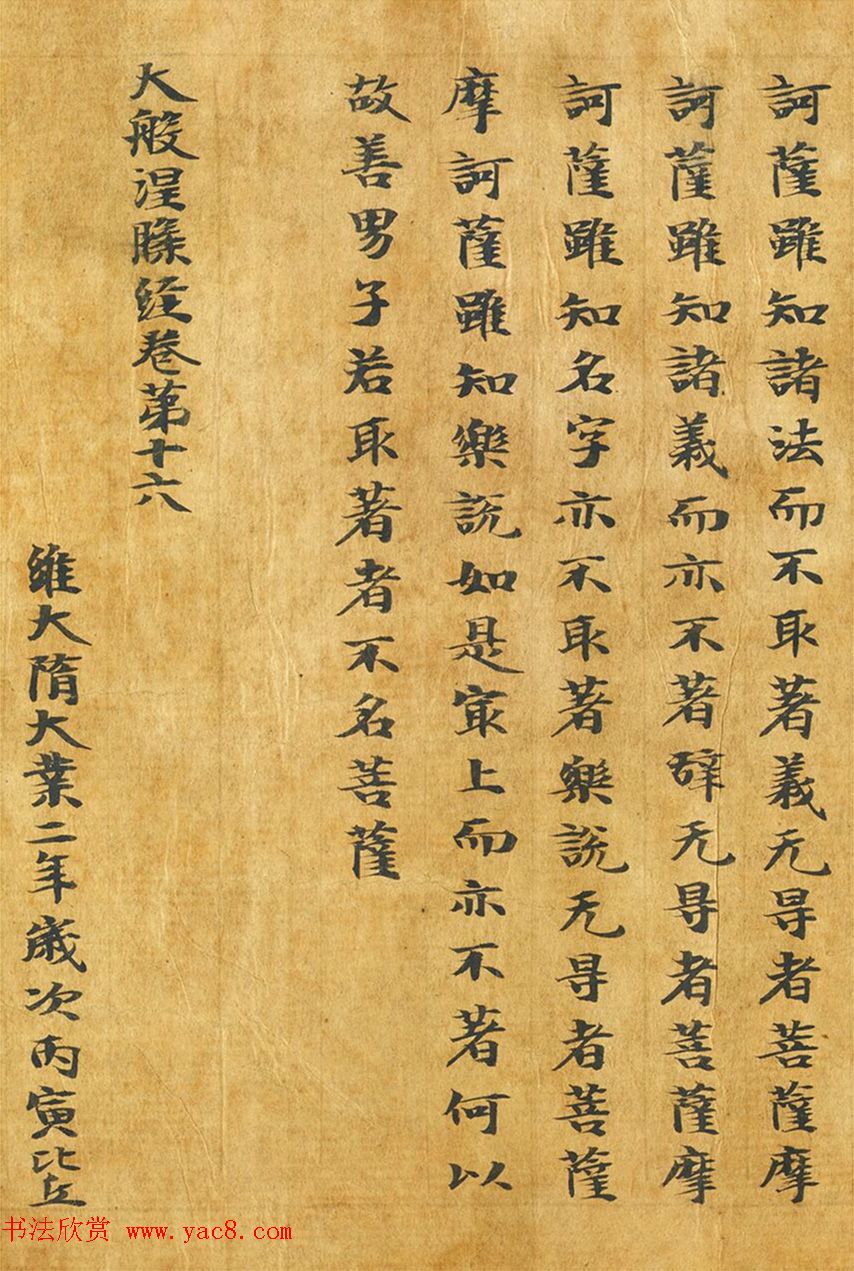 訶薩雖知諸法而不取著義无㝵者菩薩摩
訶薩雖知諸義而亦不著辞无㝵者菩薩摩
訶薩雖知名字亦不取著樂說无㝵者菩薩
摩訶薩雖知樂說如是冣上而亦不著何以
故善男子若取著者不名菩薩
大般涅槃経卷第十六
維大隋大業二年歲次丙寅比丘
书法欣赏 www.yac8.com